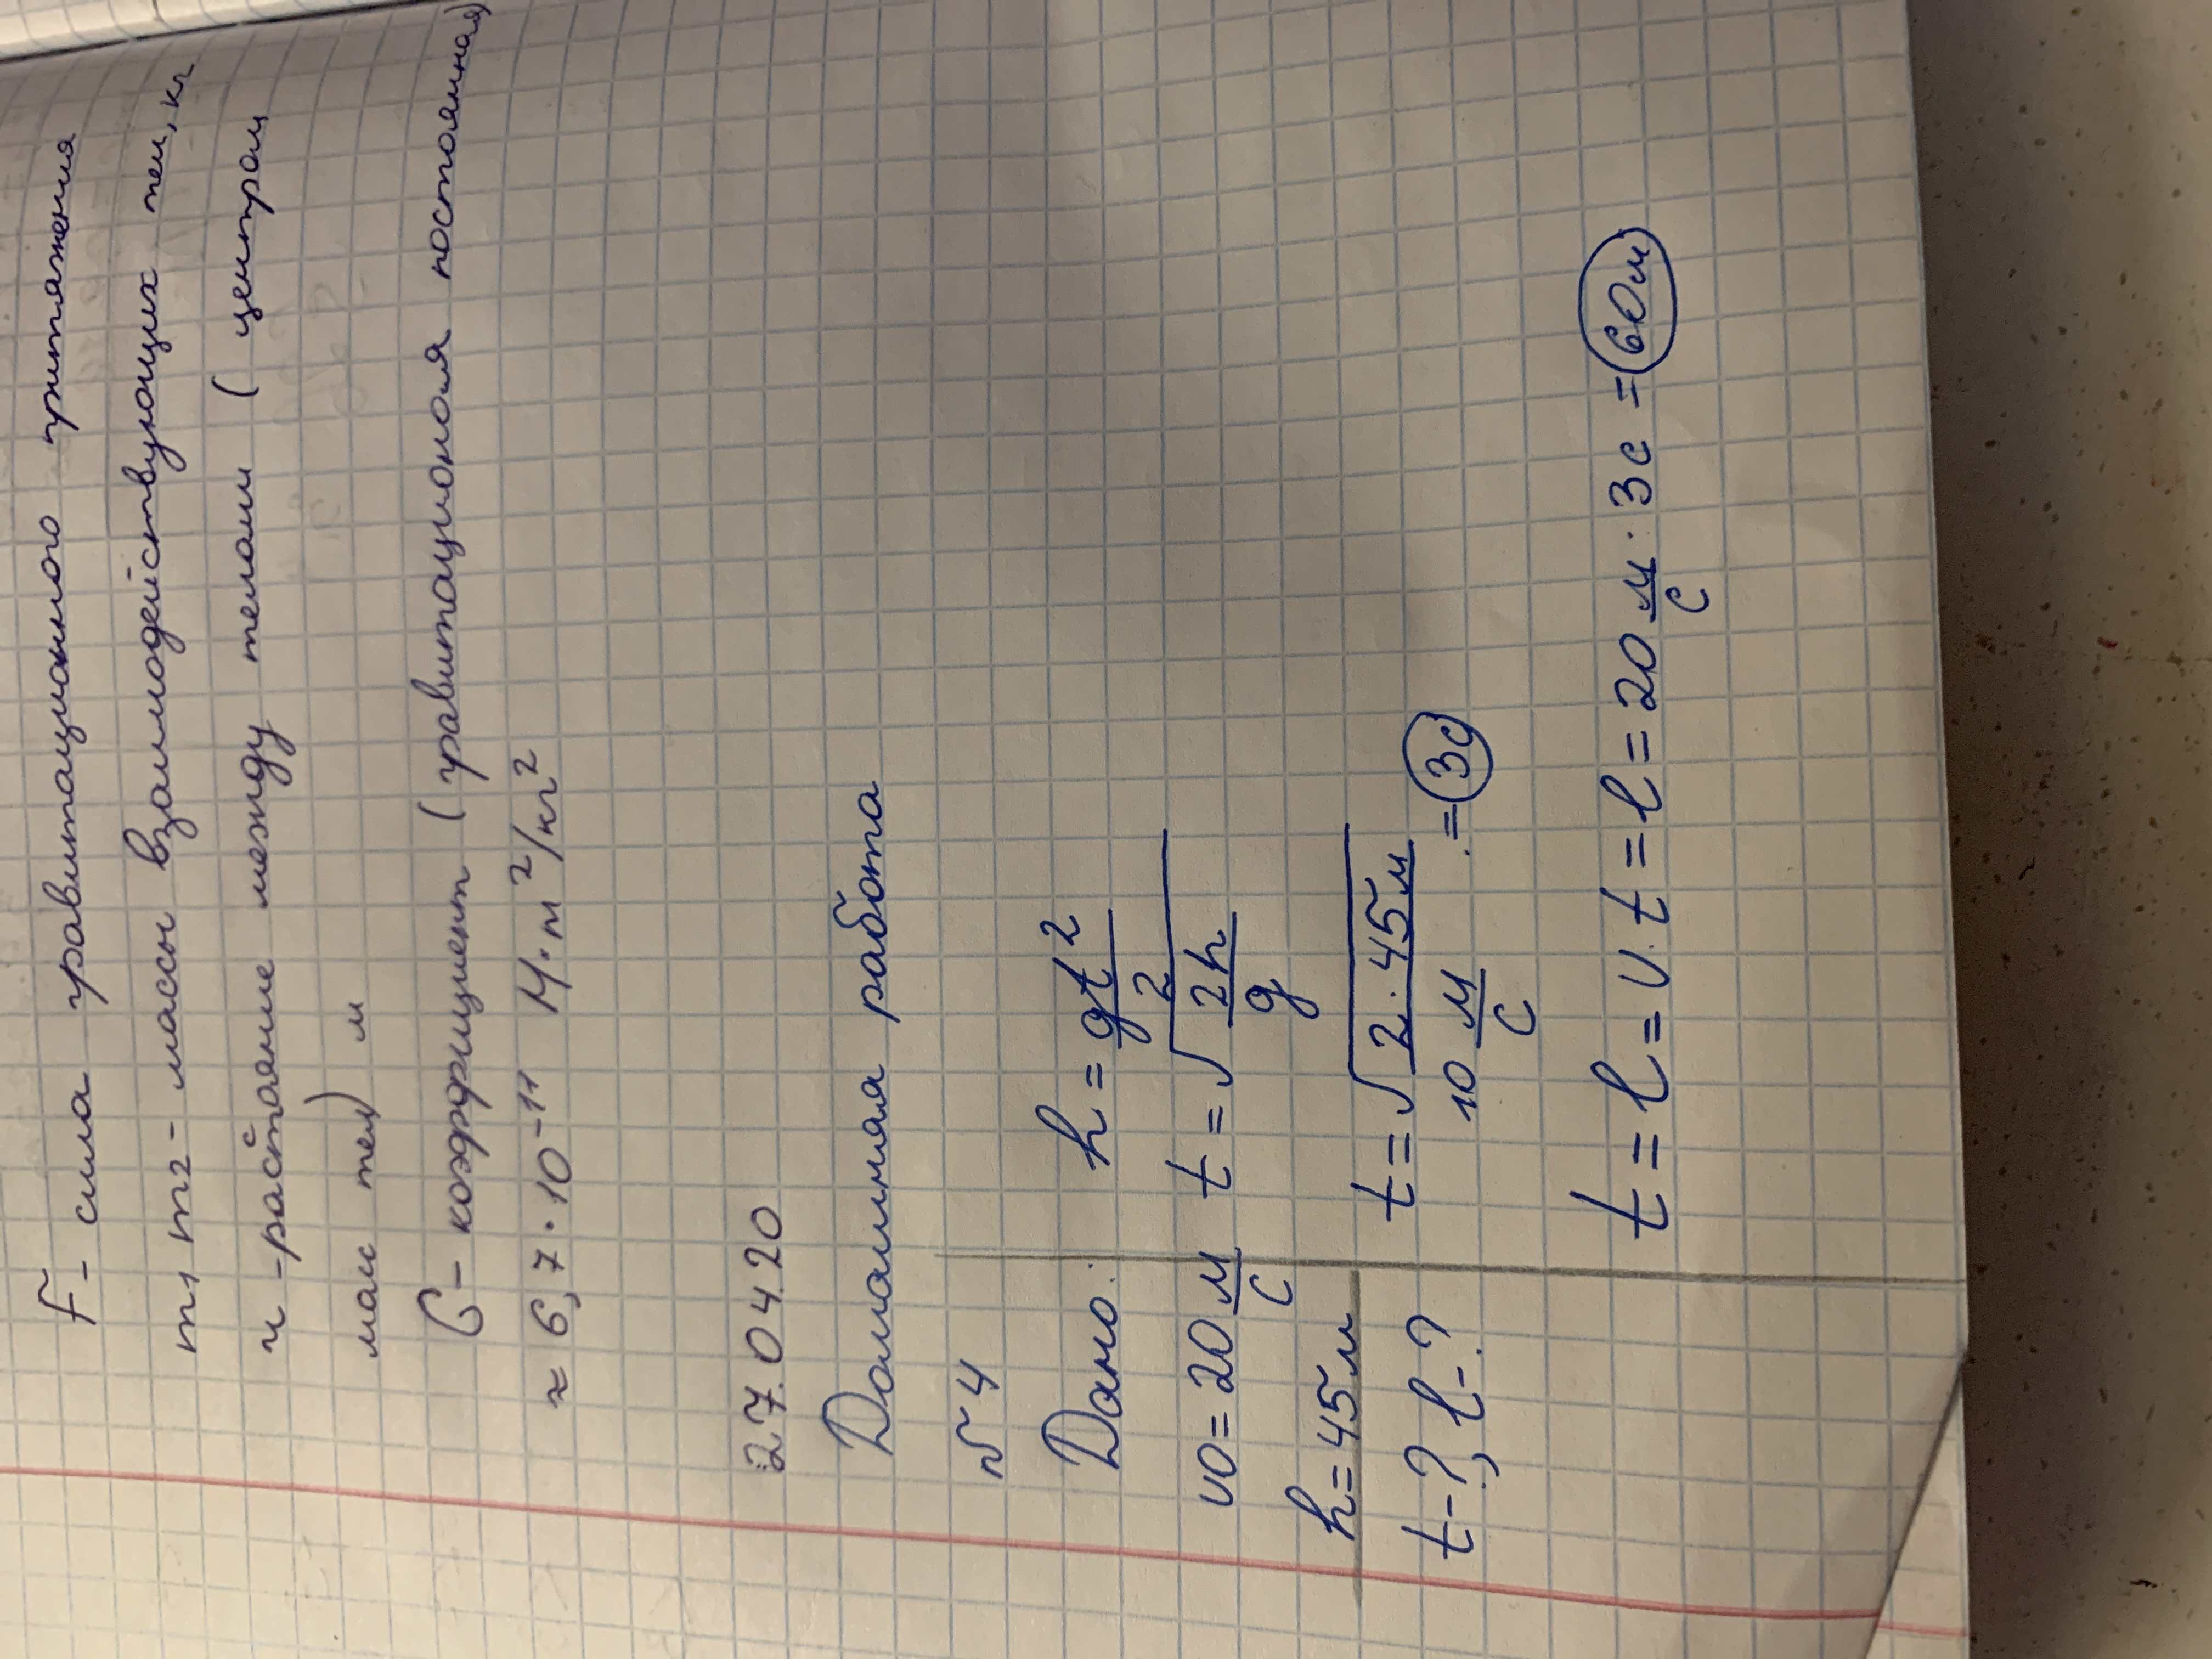 F - сила гравитационного притяжения
m1 m2 - массы взаимодействующих тел, кг
r - растояние между телами ( центрам
масс тел) м
G - коэффициент ( гравитационоля постоянная)
≈ 6,7 · 10⁻¹¹ Н·m²/кг²
27.0420
Домашняя работа
№4
Дано: h = gt²/2
v0 = 20 м/с t = √(2h/g)
h = 45 м
t - ?, l - ? t = √(2·45м/10 м/с) = 3с
t = l = v·t = l = 20 м/с · 3с = 60м